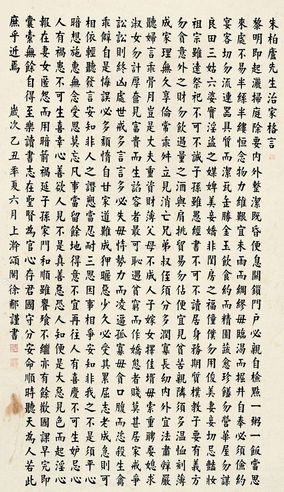 朱柏廬先生治家格言
黎明即起灑掃庭除要內外整潔既昏便息關鎖門戶必親自檢點一粥一飯當思
來處不易半絲半縷恒念物力維艱宜未雨而綢繆毋臨渴而掘井自奉必須儉約
宴客切勿流連器具質而潔瓦缶勝金玉飲食約而精園蔬愈珍饈勿營華屋勿謀
良田三姑六婆實淫盜之媒婢美妾嬌非閨房之福僮僕勿用俊美妻妾切忌豔妝
祖宗雖遠祭祀不可不誠子孫雖愚經書不可不讀居身務期質樸教子要有義方
勿貪意外之財勿飲過量之酒與肩挑貿易勿佔便宜見貧苦親鄰須多溫恤刻薄
成家理無久享倫常乖舛立見消亡兄弟叔侄須分多潤寡長幼內外宜法肅辭嚴
聽婦言乖骨肉豈是丈夫重資財薄父母不成人子嫁女擇佳婿毋索重聘娶媳求
淑女勿計厚奩見富貴而生諂容者最可恥遇貧窮而作驕態者賤莫甚居家戒爭
訟訟則終凶處世戒多言言多必失毋恃勢力而凌逼孤寡毋貪口腹而恣殺生禽
乖僻自是悔誤必多頹惰自甘家道難成狎暱惡少久必受其累屈志老成急則可
相依輕聽發言安知非人之譖愬當忍耐三思因事相爭安知非我之不是須平心
暗想施惠無念受恩莫忘凡事當留餘地得意不宜再往人有喜慶不可生妒忌心
人有禍患不可生喜幸心善欲人見不是真善惡恐人知便是大惡見色而起淫心
報在妻女匿怨而用暗箭禍延子孫家門和順雖饔飧不繼亦有餘歡國課早完即
囊橐無餘自得至樂讀書志在聖賢為官心存君國守分安命順時聽天為人若此
庶乎近焉 歲次乙丑年夏六月上澣頌閣徐郙謹書